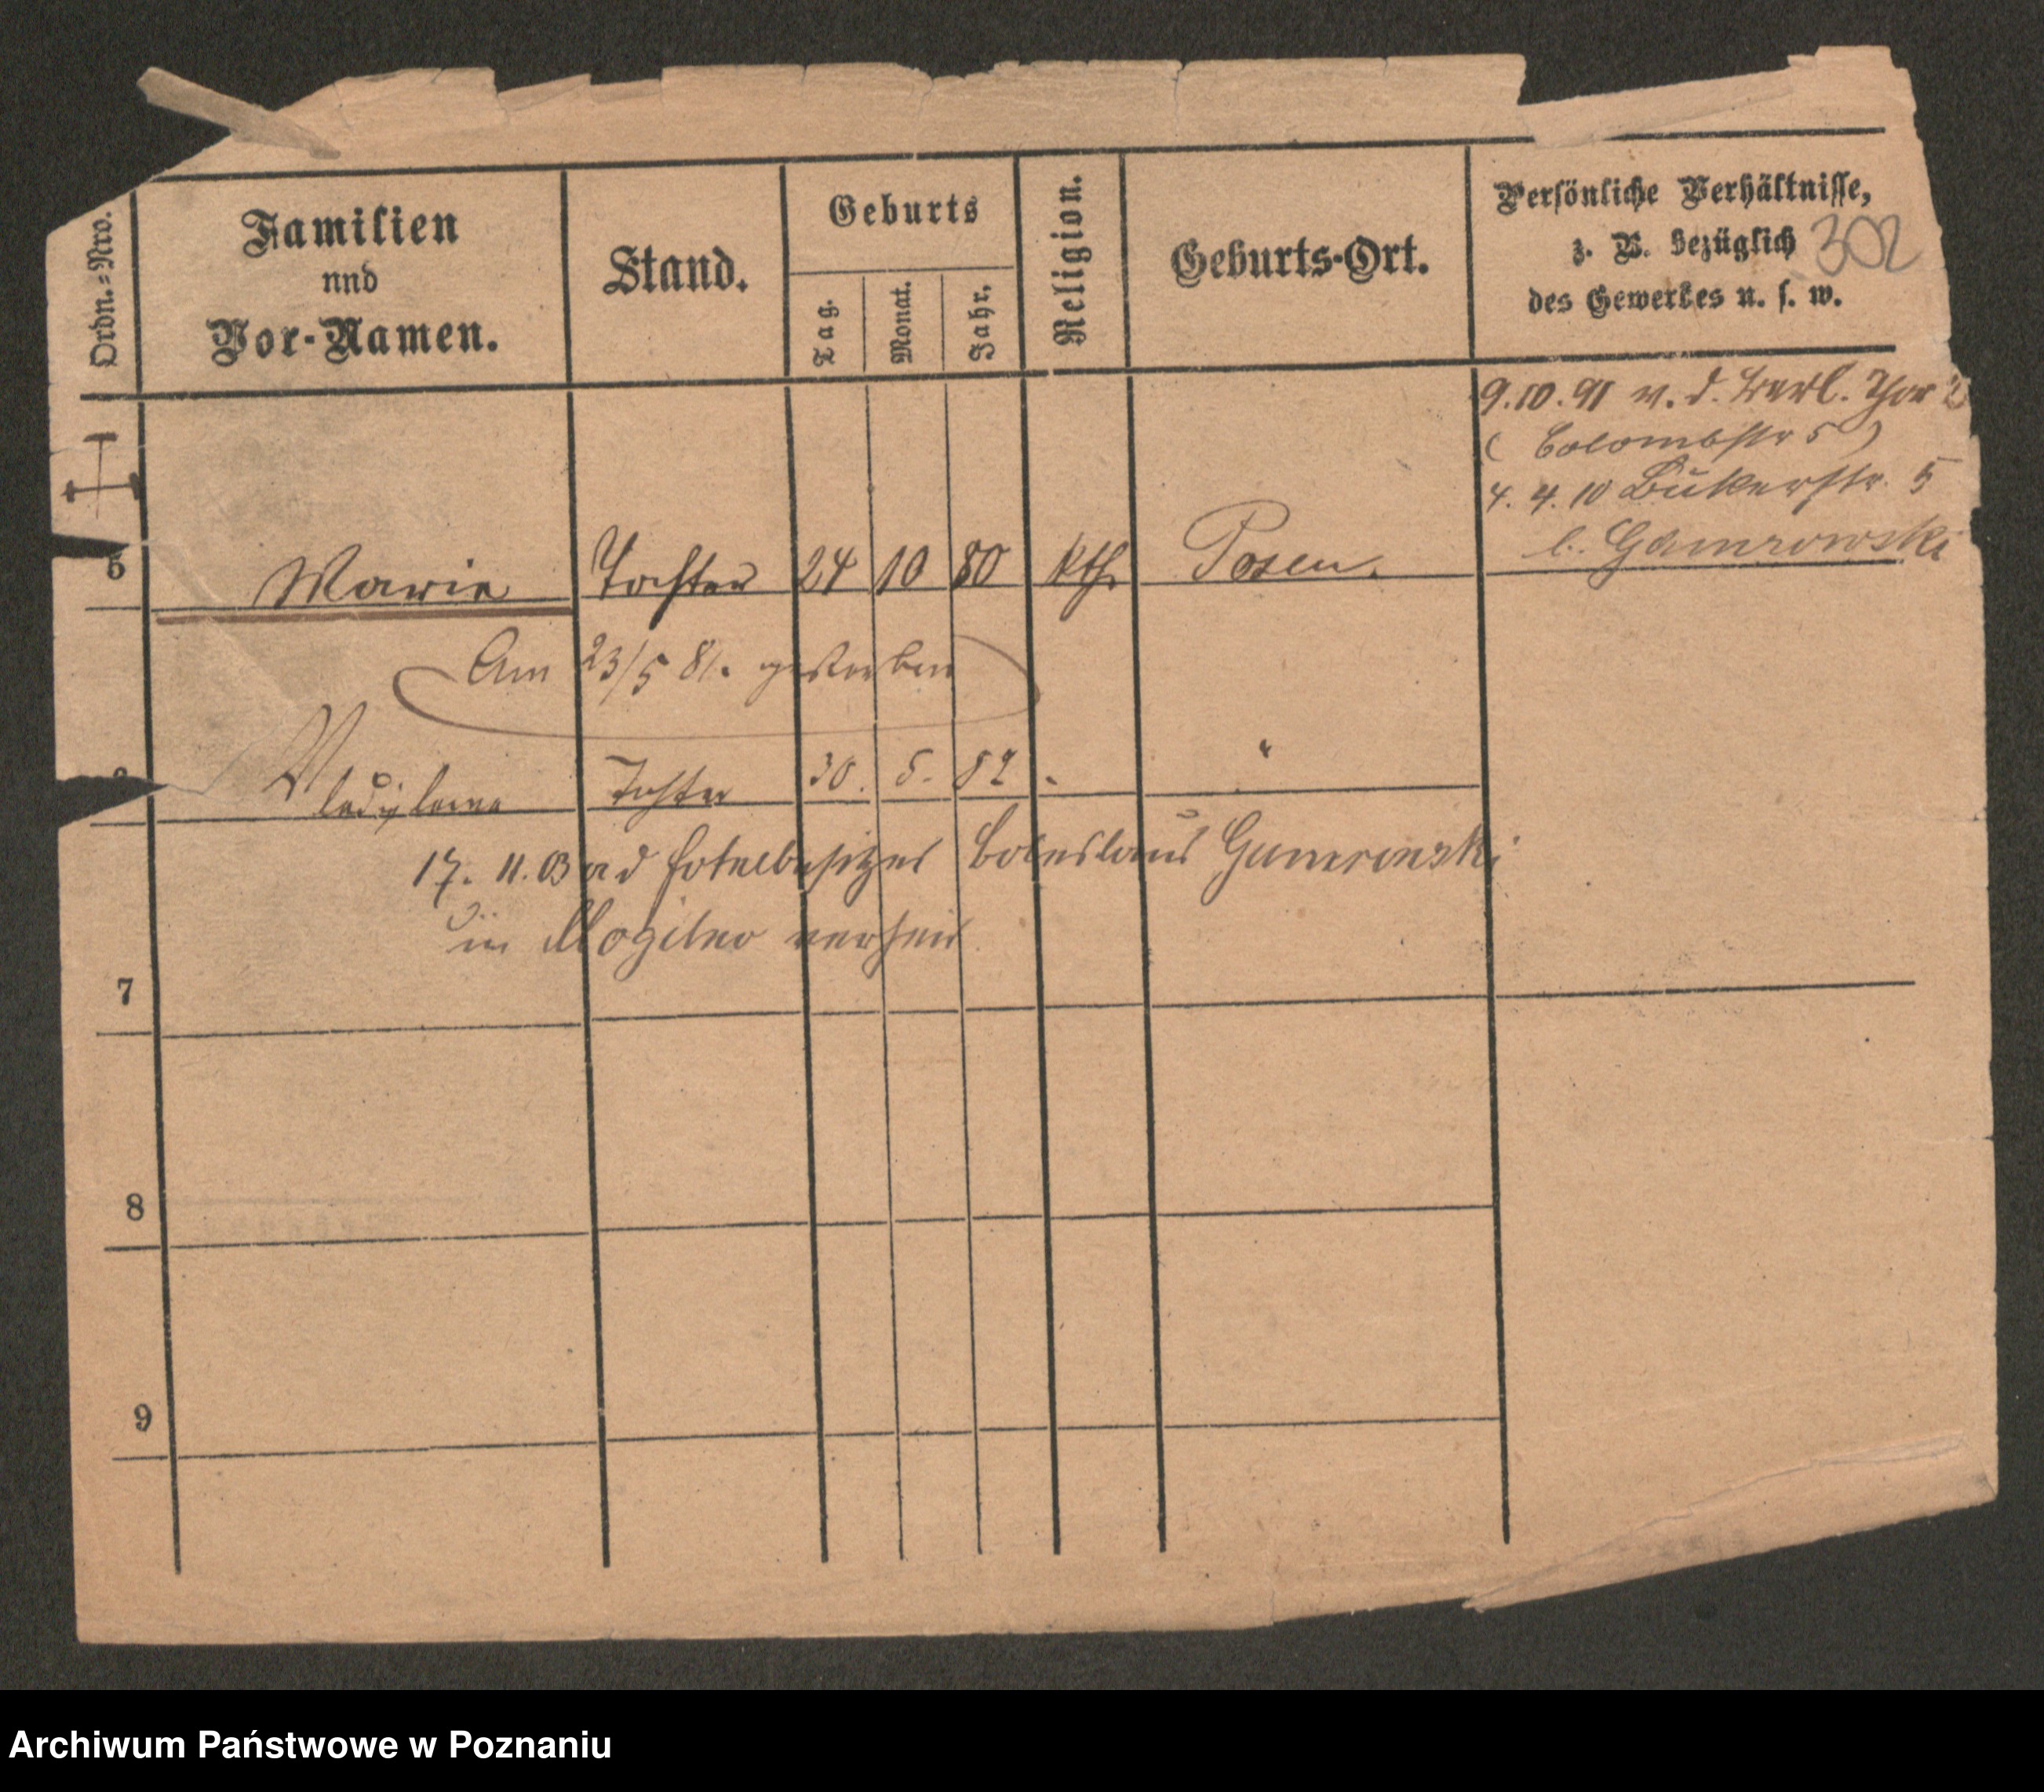 Ordn.=Nro.
Familien
nnd
Vor-Namen.
Stand.
Geburts
Tag.
Monat.
Jahr.
Religion.
Geburts-Ort.
Persönliche Verhältnisse,
z. B. bezüglich
des Gewerbes u. s. w.
302
9.10.91 v. d. Berl. Thor 2
( Colombstr 5 )
4. 4. 10 Bukerstr. 5
b. Gamrowski
5 Marie Tochter 24 10 80 kth. Posen.
Am 23/5 81. gestorben
Wladyslawa Tochter 30. 5. 82 "
17. 11. 03 Hotelbesitzer Boleslaus Gamrowski
in Mogilno verheir
7
8
9
Archiwum Państwowe w Poznaniu